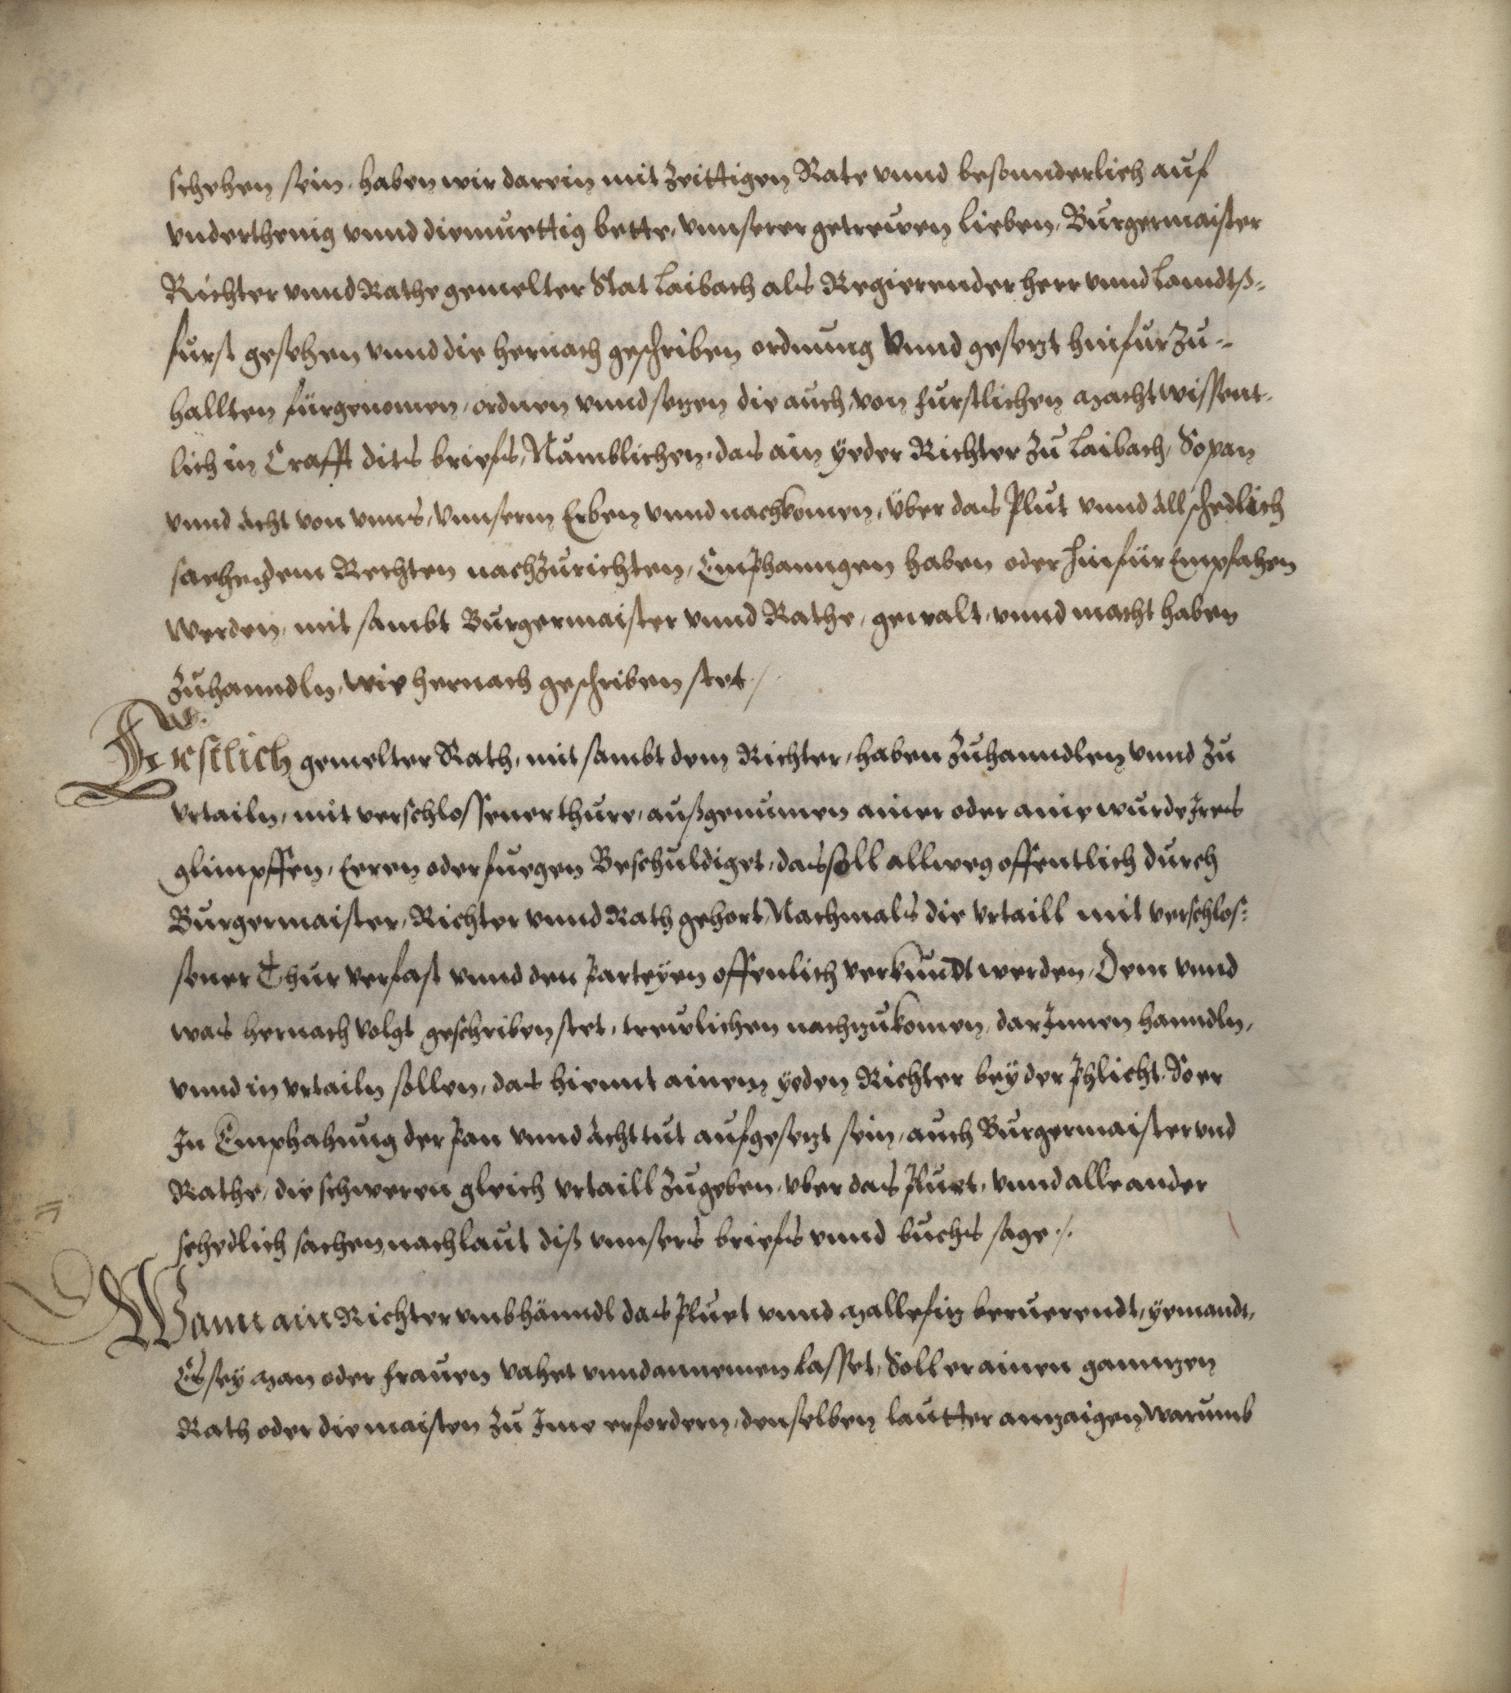 schehen sein, haben wir darein mit zeittigen Rate vnnd besonnderlich auf
vnderthenig vnnd diemuettig bette, vnnserer getrewen lieben, Burgermaister
Richter vnnd Rathe gemelter Stat Laibach als Regierender herr vnnd Lanndtß-
furst gesehen vnnd die hernach geschriben ordnung vnnd gesetzt hinfur zu-
hallten fürgenomen, ordnen vnnd setzen die auch, von furstlichen macht wissent-
lich in Crafft dits briefs, Nämblichen, das ain yeder Richter zu Laibach, So pan
vnnd acht von vnns, vnnserm Erben vnnd nachkomen, über das Plut vnnd all schedlich
sachen dem Rechten nachzurichten, Emphanngen haben oder hinfür Empfahen
werden, mit sambt Burgermaister vnnd Rathe, gewalt, vnnd macht haben
zuhanndln, wie hernach geschriben stet./
Erstlich gemelter Rath, mit sambt dem Richter, haben zuhanndlen vnnd zu
vrtailn, mit verschlossener thure, außgenumen ainer oder aine wurde Jres
glimpffen, Eeren oder fuegen Beschuldiget, das soll allweg offentlich durch
Burgermaister, Richter vnnd Rath gehort, Nachmals die vrtaill mit verschlos-
sener Thur verfast vnnd den parteyen offenlich verkundt werden, Dem vnnd
was hernach volgt geschriben stet, trewlichen nachzukomen, dar Jnnen hanndln,
vnnd in vrtailn sollen, das hiemit ainem yeden Richter bey der phlicht, So er
Jn Emphahung der pan vnnd acht tut aufgesetzt sein, auch Burgermaister vnd
Rathe, die schweren gleich vrtaill zugeben, vber das pluet, vnnd alle ander
schedlich sachen, nachlaut diß vnnsers briefs vnnd buchs sage ./.
Wann ain Richter vmb hänndl das pluet vnnd mallefitz beruerendt, yemandt,
Es sey man oder frauen vahet vnnd annemen lasset, Soll er ainen ganntzen
Rath oder die maisten zu Jme erfordern, denselben lautter anzaigen, warumb